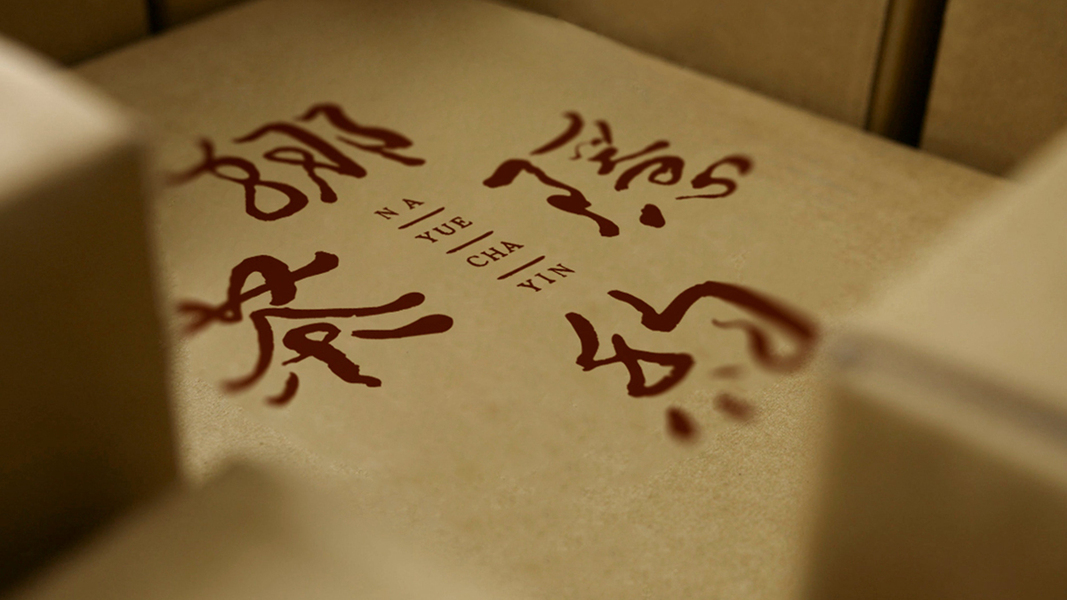 娜
茶
NA
YUE
CHA
YIN